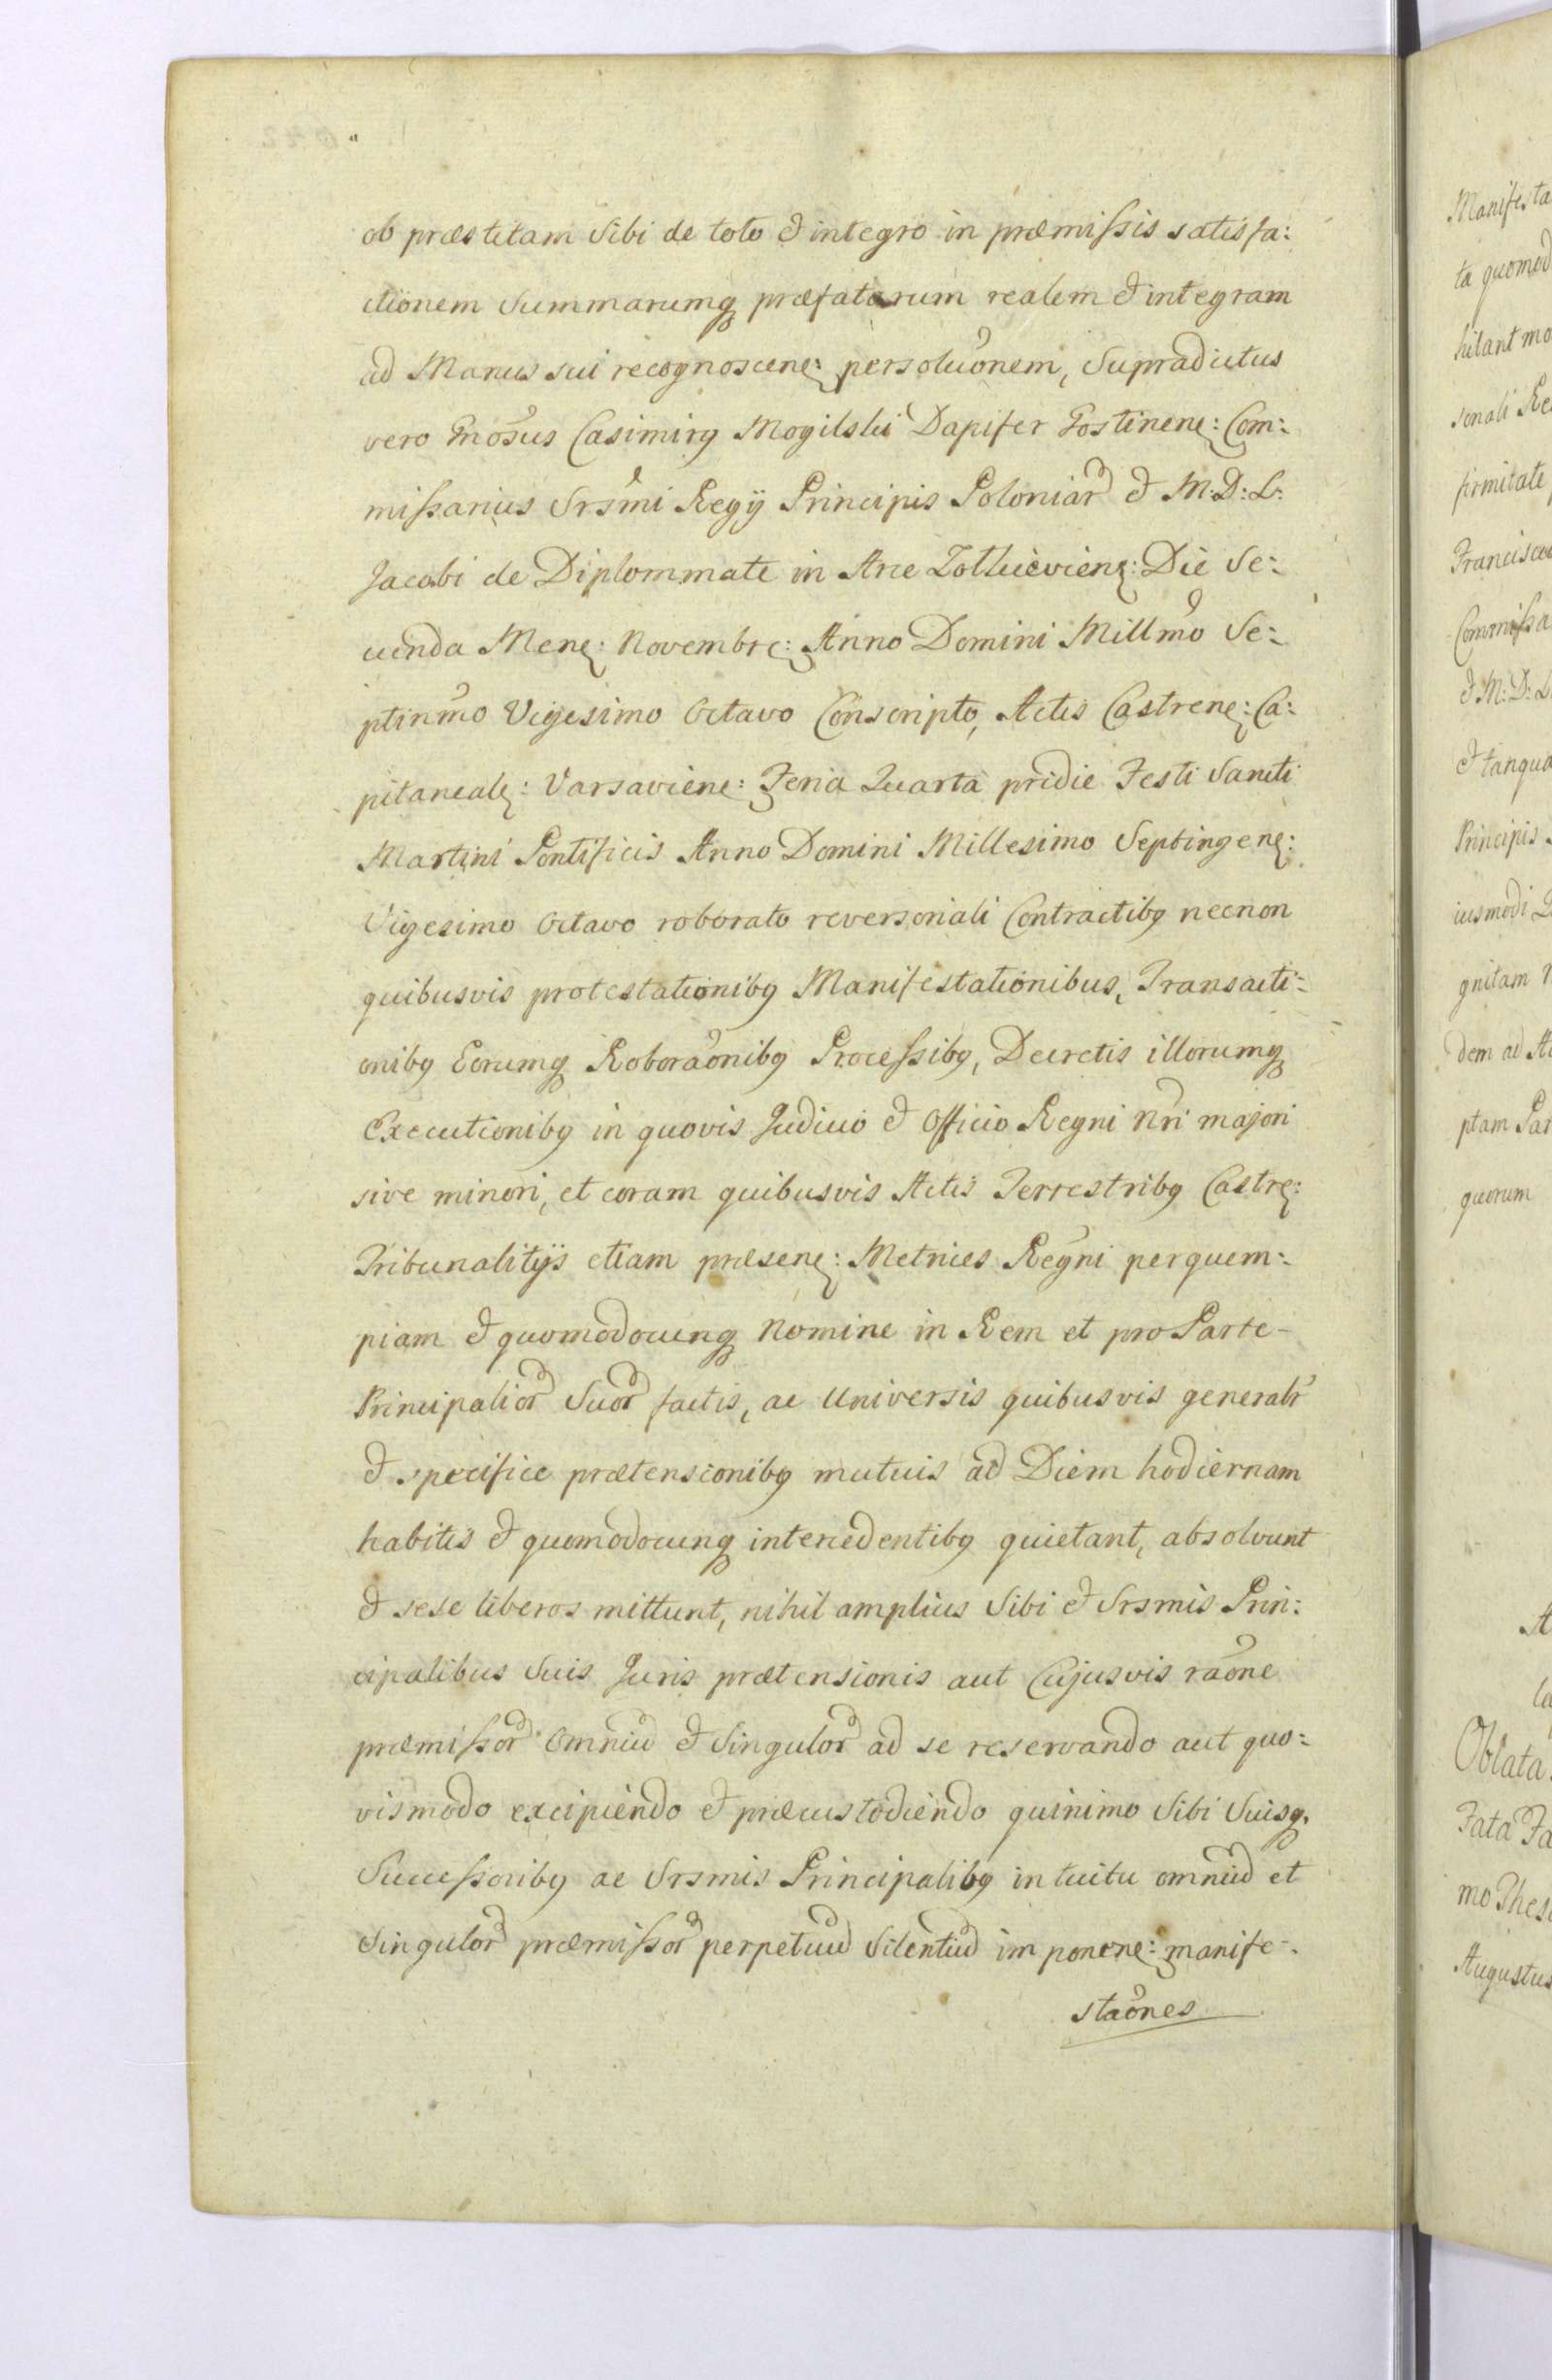 ob præstitam Sibi de toto & integro in præmissis satisfa:
ctionem Summarumq præfatarum realem & integram
ad Manus sui recognoscenę: persolu͠onem, Supradictus
vero Gn͠osus Casimirꝰ Mogilski Dapifer Gostinenę: Com:
missarius Srs͠mi Regÿ Principis Poloniar͠ & M: D: L:
Jacobi de Diplommate in Arce Zolkievienę: Die Se:
cunda Menę: Novembrę: Anno Domini Mill͠mo Se:
ptin͠mo Vigesimo Octavo Conscripto, Actis Castrenę: Ca:
pitanealę: Varsavienę: Feria Quarta pridie Festi Sancti
Martini Pontificis Anno Domini Millesimo Septingenę:
Vigesimo Octavo roborato reversoriali Contractibꝰ necnon
quibusvis protestationibꝰ Manifestationibus, Transacti:
onibꝰ Eorumq Robora͠onibꝰ Processibꝰ, Decretis illorumq
Executionibꝰ in quovis Judicio & Officio Regni N͠ri majori
sive minori, et coram quibusvis Actis Terrestribꝰ Castrę:
Tribunalitÿs etiam præsenę: Metrices Regni perquem:
piam & quomodocunq Nomine in Rem et pro Parte-
Principalior͠ Suor͠ factis, ac Universis quibusvis generalr͠
& specifice prætensionibꝰ mutuis ad Diem hodiernam
habitis & quomodocunq intercedentibꝰ quietant, absolvunt
& sese liberos mittunt, nihil amplius Sibi & Srsmis Prin:
cipalibus Suis Juris prætensionis aut Cujusvis ra͠one
præmissor͠ Omniu͠ & Singulor͠ ad se reservando aut quo:
vismodo excipiendo & præcustodiendo quinimo Sibi Suisq
Successoribꝰ ac Srsmis Principalibꝰ intuitu omniu͠ et
Singulor͠ præmissor͠ perpetuu͠ Silentiu͠ imponenę: manife-
sta͠ones
Manifesta
ta quomod
hitant mo
sonali Re
firmitate
Francisc
Commissa
& M: D: L
& tanqua
Principis
iusmodi
gnitam
dem ad
ptam Par
quorum
Oblata
Fata Fa
mo Thes
Augustus